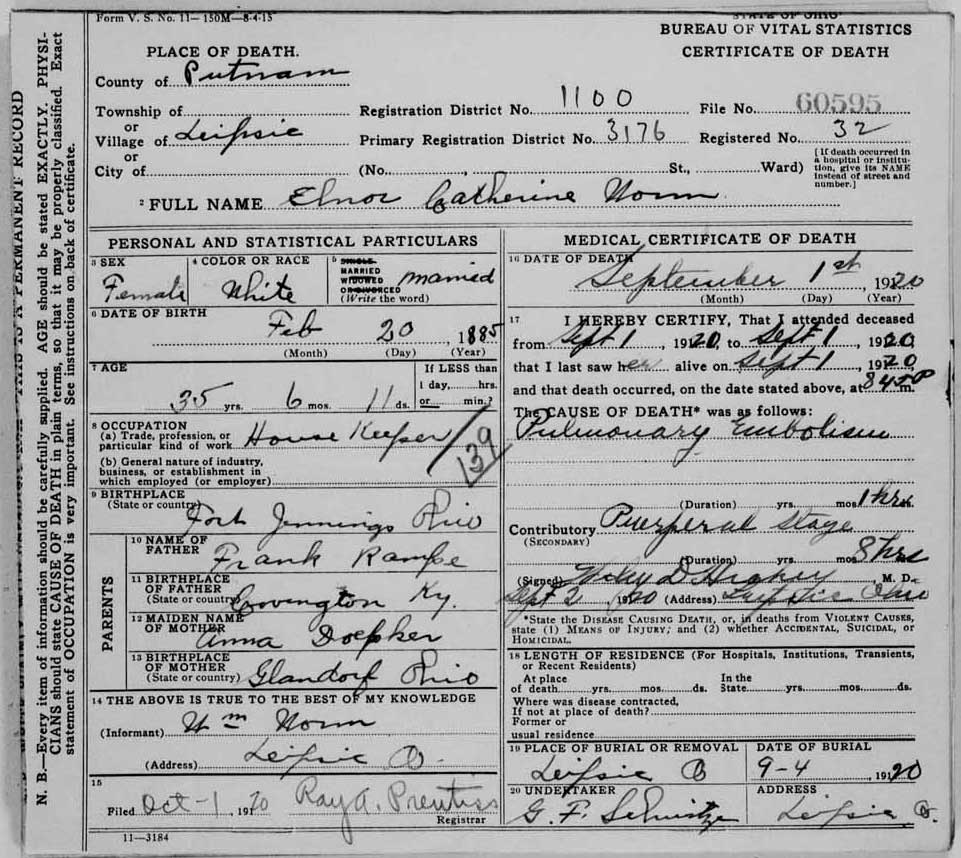 Form V. S. No. 11—150M—8-4-15
STATE OF OHIO
BUREAU OF VITAL STATISTICS
CERTIFICATE OF DEATH
PLACE OF DEATH.
County of Putnam
Township of
or
Village of Leipsic
or
City of
Registration District No. 1100
File No. 60595
Primary Registration District No. 3176
Registered No. 32
(No. , St., Ward)
[If death occurred in
a hospital or institu-
tion, give its NAME
instead of street and
number.]
2 FULL NAME Elnor Catherine Norm
PERSONAL AND STATISTICAL PARTICULARS
3 SEX
Female
4 COLOR OR RACE
White
5 SINGLE
MARRIED
WIDOWED
OR DIVORCED
(Write the word)
Married
6 DATE OF BIRTH
Feb 20, 1885
(Month) (Day) (Year)
7 AGE
35 yrs. 6 mos. 11 ds.
If LESS than
1 day, hrs.
or min.?
8 OCCUPATION
(a) Trade, profession, or
particular kind of work House Keeper
139
(b) General nature of industry,
business, or establishment in
which employed (or employer)
9 BIRTHPLACE
(State or country)
Fort Jennings Ohio
PARENTS
10 NAME OF
FATHER
Frank Rampe
11 BIRTHPLACE
OF FATHER
(State or country)
Covington Ky.
12 MAIDEN NAME
OF MOTHER
Anna Doepker
13 BIRTHPLACE
OF MOTHER
(State or country) Glandorf Ohio
14 THE ABOVE IS TRUE TO THE BEST OF MY KNOWLEDGE
(Informant) Wm Norm
(Address) Leipsic O.
15
Filed Oct-1, 1920 Ray A. Prentiss
Registrar
11—3184
MEDICAL CERTIFICATE OF DEATH
16 DATE OF DEATH
September 1st, 1920
(Month) (Day) (Year)
17 I HEREBY CERTIFY, That I attended deceased
from Sept 1, 1920, to Sept 1, 1920,
that I last saw her alive on Sept 1, 1920
and that death occurred, on the date stated above, at 845 P m.
The CAUSE OF DEATH* was as follows:
Pulmonary Embolism
(Duration) yrs. mos. 1 hrs.
Contributory Puerperal Stage
(SECONDARY)
(Duration) yrs. mos. 8 hrs
(Signed) M. D.
Sept 2 1920 (Address) Leipsic Ohio
*State the DISEASE CAUSING DEATH, or, in deaths from VIOLENT CAUSES,
state (1) MEANS OF INJURY; and (2) whether ACCIDENTAL, SUICIDAL, or
HOMICIDAL.
18 LENGTH OF RESIDENCE (For Hospitals, Institutions, Transients,
or Recent Residents)
At place
of death yrs. mos. ds.
In the
State yrs. mos. ds.
Where was disease contracted,
If not at place of death?
Former or
usual residence
19 PLACE OF BURIAL OR REMOVAL
Leipsic O
DATE OF BURIAL
9-4, 1920
20 UNDERTAKER
G. F.
ADDRESS
Leipsic O.
THIS IS A PERMANENT RECORD
N. B.—Every item of information should be carefully supplied. AGE should be stated EXACTLY. PHYSI-
CIANS should state CAUSE OF DEATH in plain terms, so that it may be properly classified. Exact
statement of OCCUPATION is very important. See instructions on back of certificate.